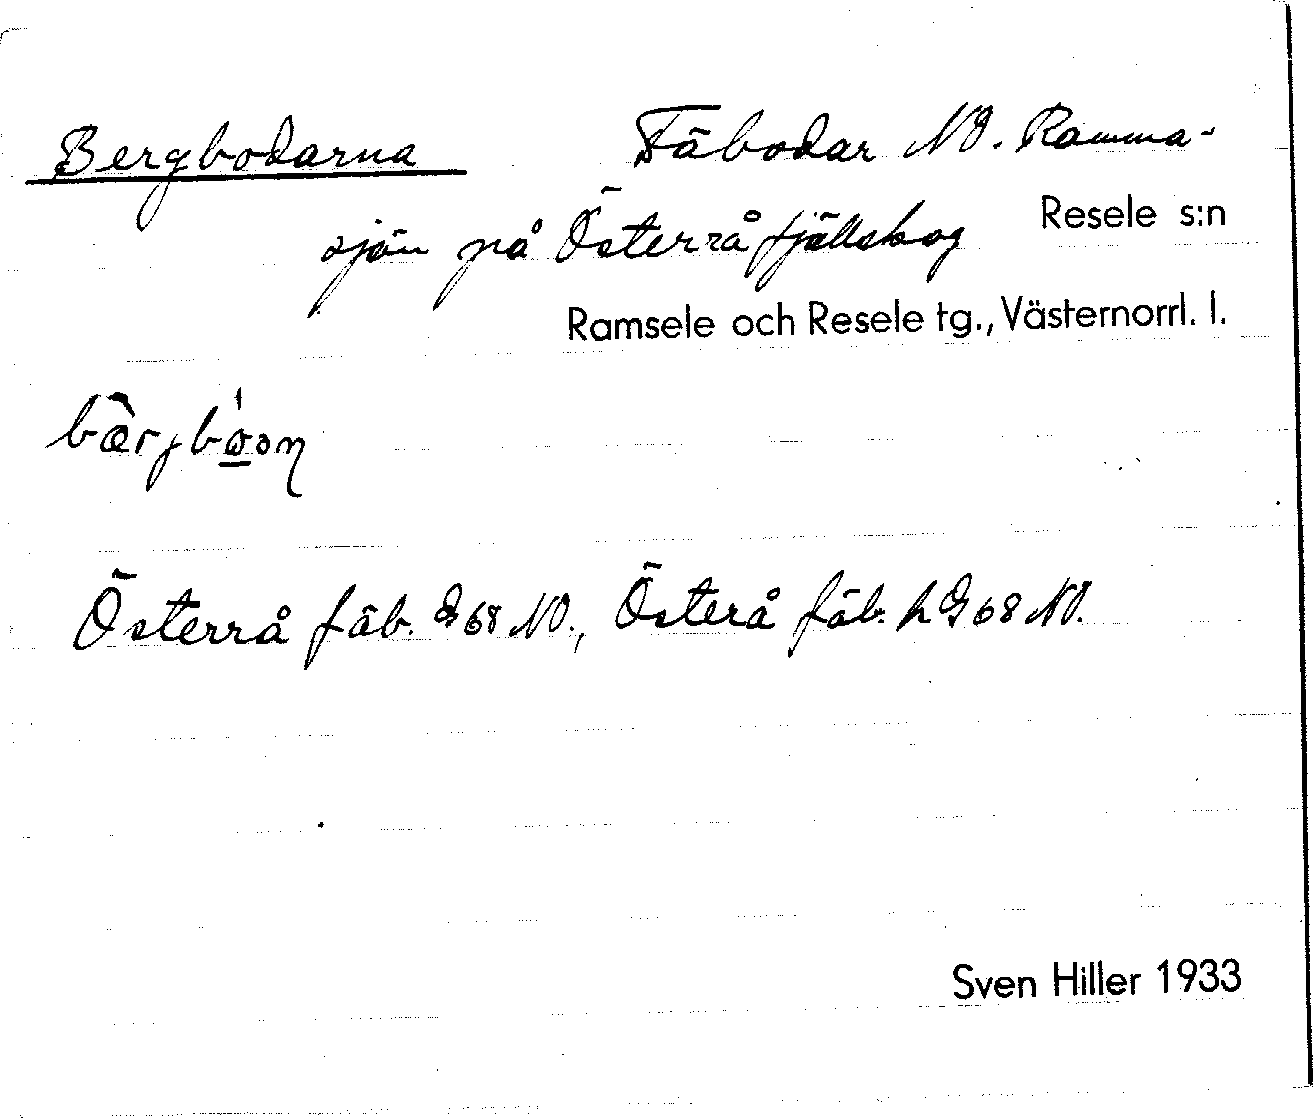 Bergbodarna Fäbodar NO. Ramma-
sjön på Österråfjällskog Resele s:n
Ramsele och Resele tg., Västernorrl. l.
Österrå fäb. G68 NO., Österå fäb. h G68 NO.
Sven Hiller 1933